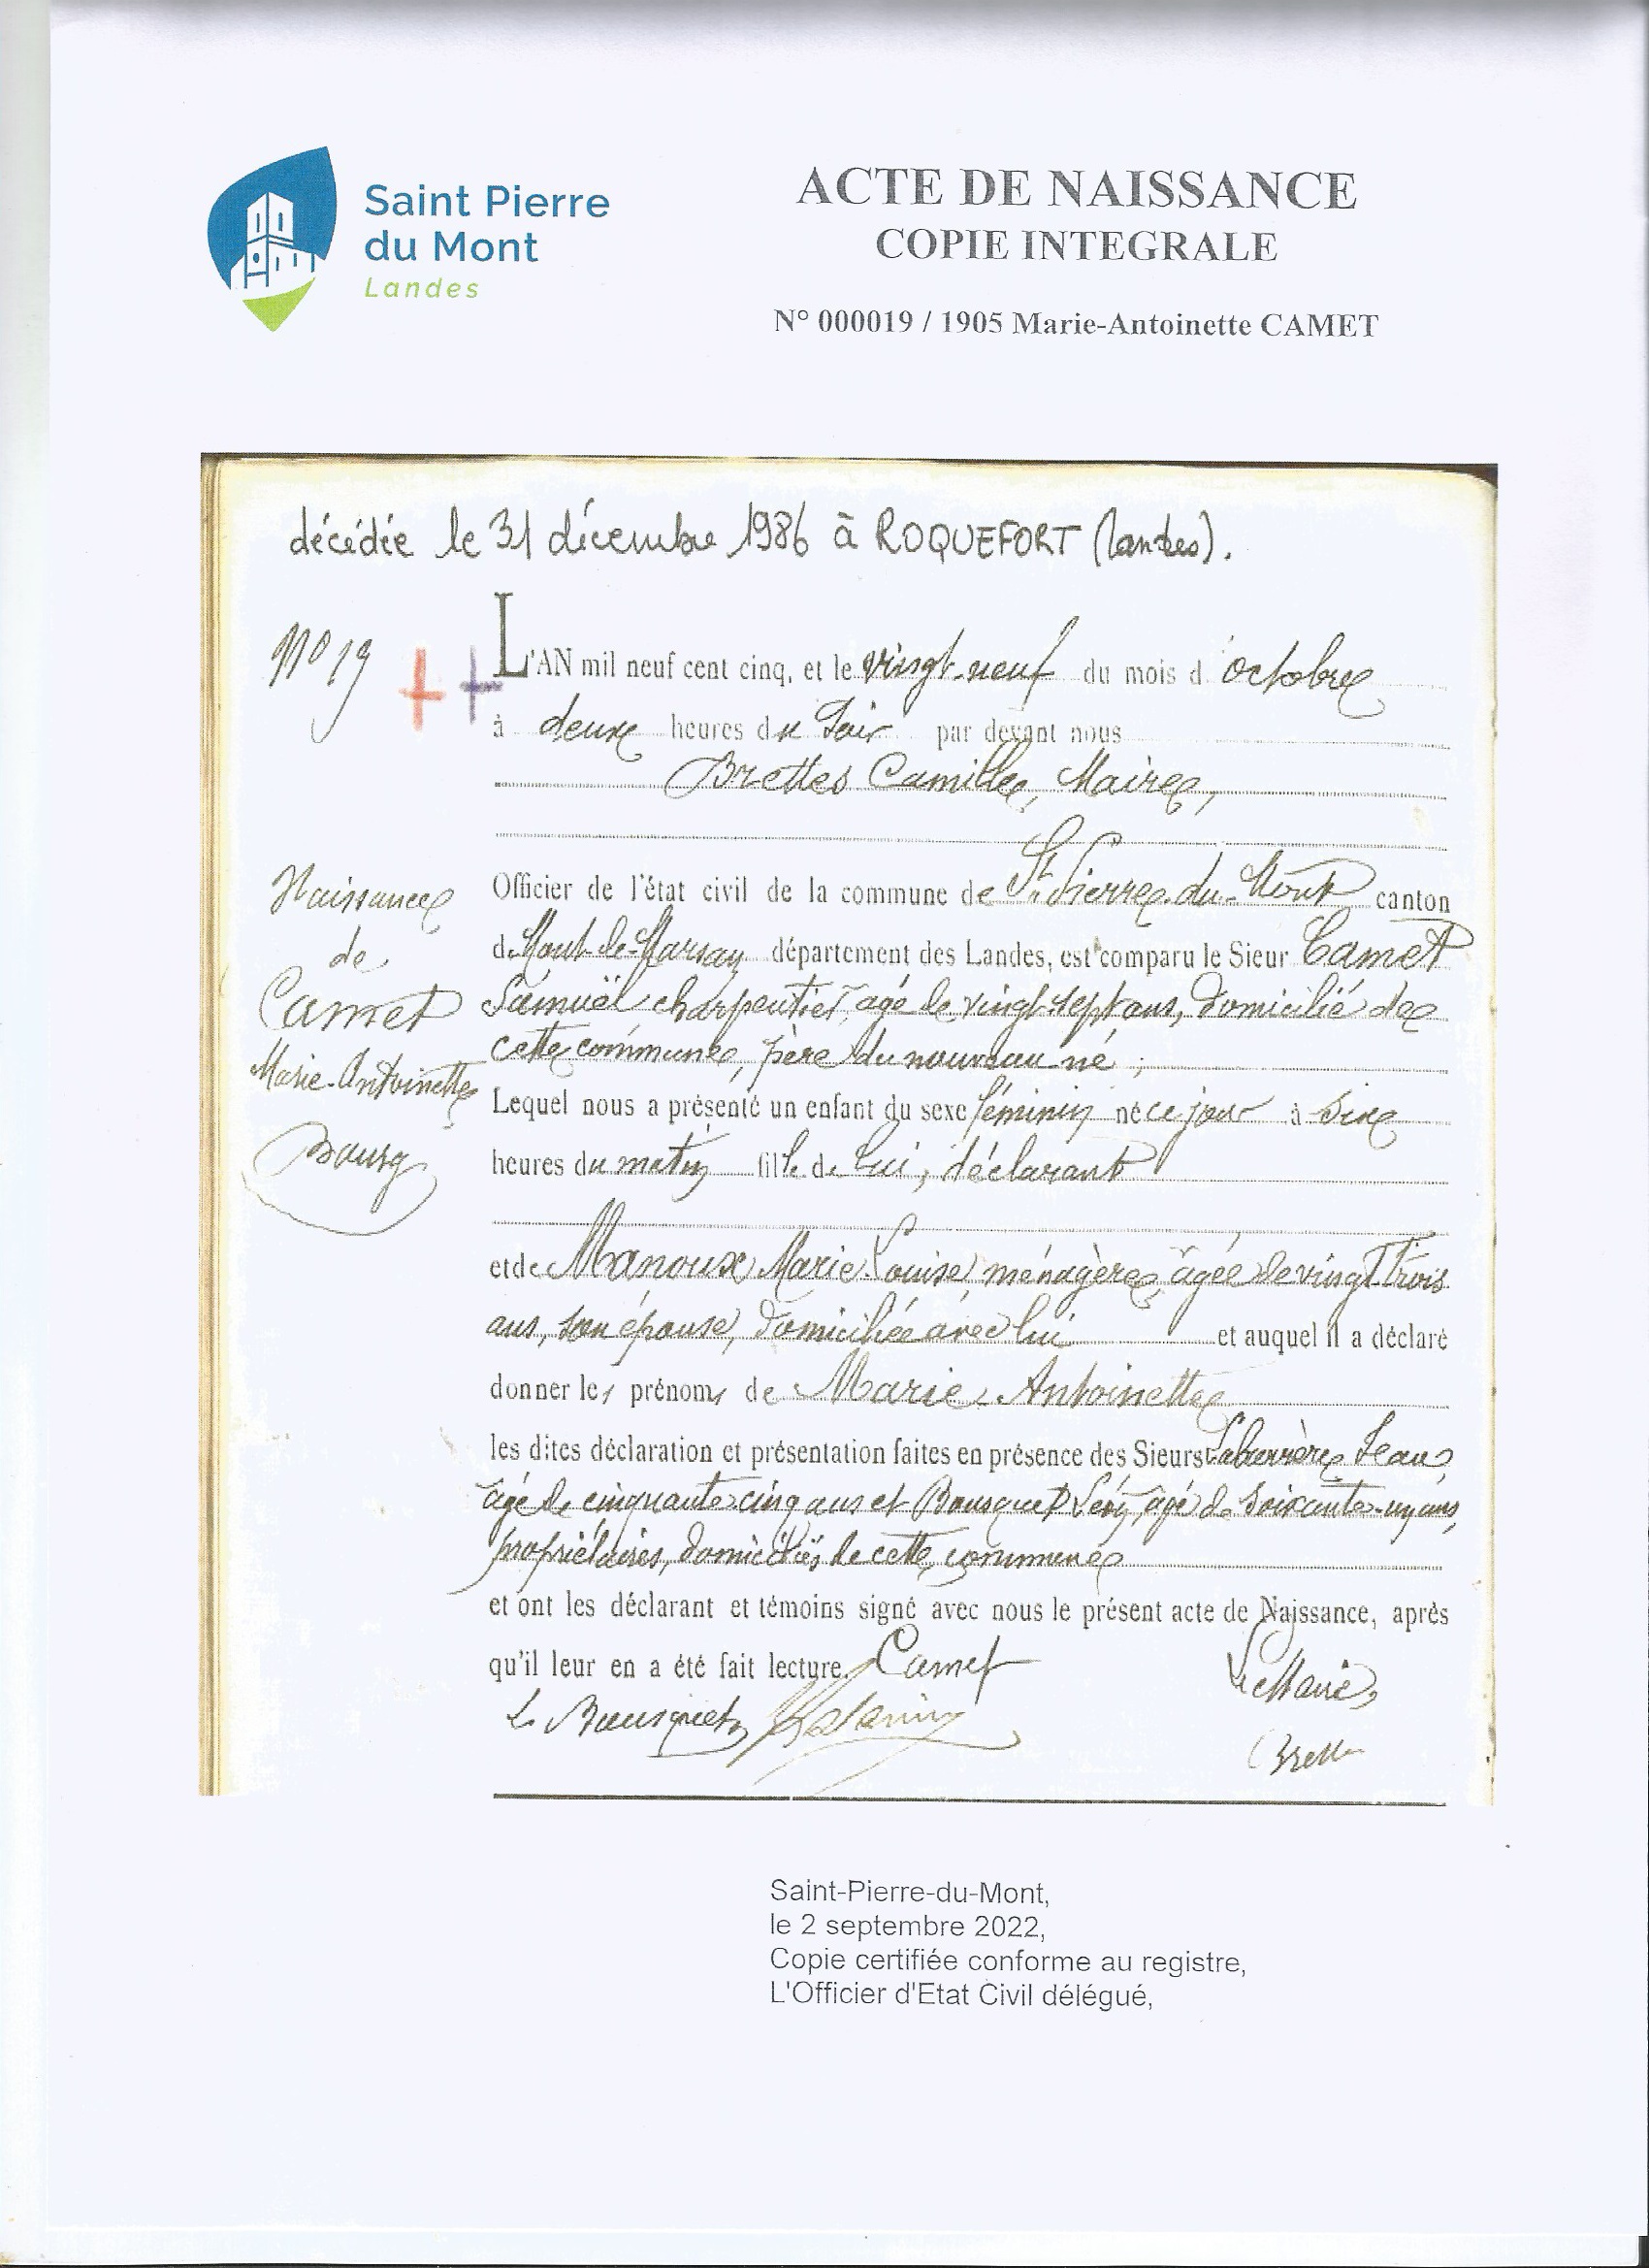 Saint Pierre
du Mont
Landes
ACTE DE NAISSANCE
COPIE INTEGRALE
N° 000019 / 1905 Marie-Antoinette CAMET
décédée le 31 décembre 1986 à ROQUEFORT (Landes).
N° 19
L'AN mil neuf cent cinq, et le vingt-neuf du mois d'octobre
à deux heures du soir par devant nous
Brettes Camille, Maire,
Naissance
de
Camet
Marie-Antoinette
Bourg
Officier de l'état civil de la commune de St Pierre-du-Mont canton
de Mont-de-Marsan département des Landes, est comparu le Sieur Camet
Samuël charpentier, âgé de vingt-sept ans, domicilié de
cette commune, père du nouveau né ;
Lequel nous a présenté un enfant du sexe féminin né ce jour à six
heures du matin fille de lui, déclarant
et de Manoux Marie-Louise, ménagère, âgée de vingt-trois
ans, son épouse, domiciliée avec lui et auquel il a déclaré
donner les prénoms de Marie-Antoinette
les dites déclaration et présentation faites en présence des Sieurs Jean,
âgé de cinquante-cinq ans et Bousquet âgé de soixante-un ans,
propriétaires, domiciliés de cette commune
et ont les déclarant et témoins signé avec nous le présent acte de Naissance, après
qu'il leur en a été fait lecture. Camet
Le Maire,
L. Bousquet
Brettes
Saint-Pierre-du-Mont,
le 2 septembre 2022,
Copie certifiée conforme au registre,
L'Officier d'Etat Civil délégué,